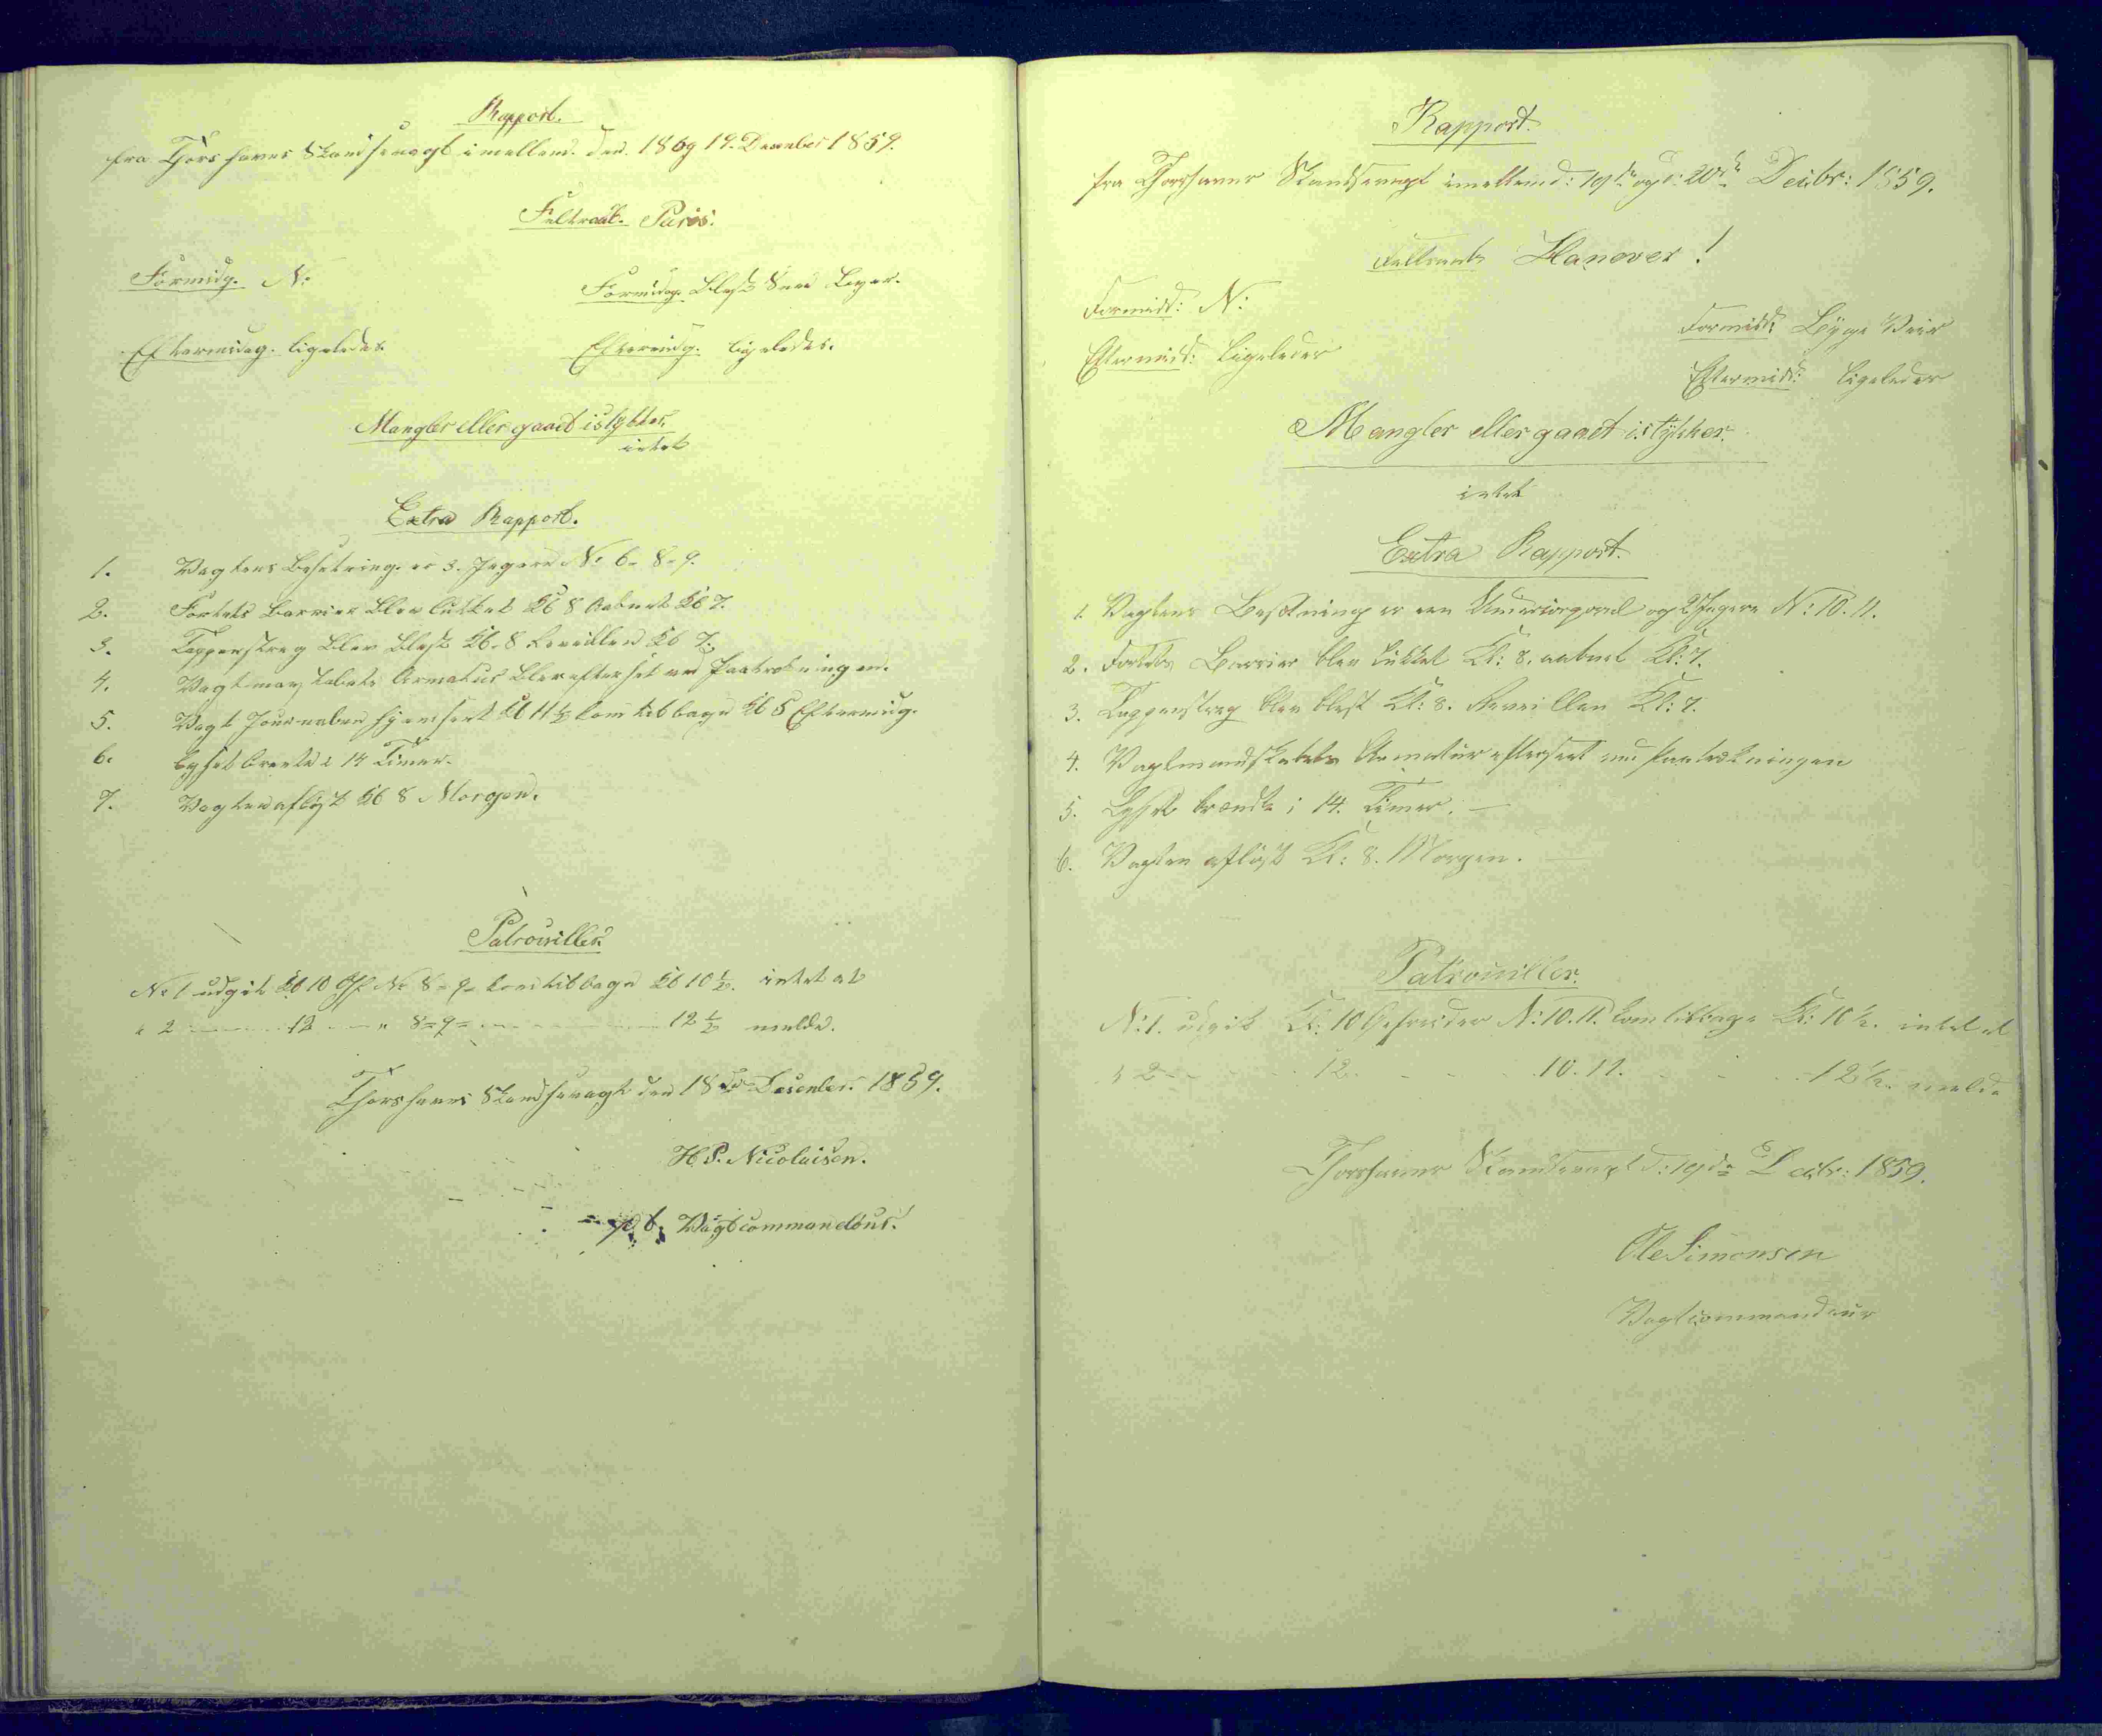 Rapport.
fra Thorshavns Skandsevagt imellem den 18 og 19. December 1859.
Feltraab. Paris.
Formidg. N:
Formidag. blæst Snee Byger.
Eftermidag. ligeledes
Eftermidg. ligeledes.
Mangler eller gaaet istykker.
intet
Extra Rapport.
1. Vagtens Besætning er 3. Jægere No 6- 8- 9.
2. Fortets Barrier blev lukket Kl 8 aabnet Kl 7.
3. Tappenstreg blev blæst Kl. 8 Reveillen Kl 7.
4. Vagtmandskabets Armatur blev efterset ved Paatrædningen.
5. Vagt Journalen hjemsent Kl 11½ kom tilbage Kl 5 Eftermidg.
6. Lyset brænte i 14 Timer.
7. Vagten afløst Kl 8 Morgen.
Patrouiller
No 1 udgik Kl 10 Gf. No 8- 9- kom tilbage Kl 10½. intet at
" 2 - - - 12 - - " 8=9= - - - 12½ melde.
Thorshavns Skandsevagt den 18de December. 1859.
H.P. Nicolaisen.
p.t. Vagtcommandeur.
Rapport.
fra Thorshavns Skandsevagt imellem d: 19de og d: 20de Decbr: 1859.
Feltraab Hanover!
Formidd: N:
Formidd: Byge Veir
Eftermidd: Ligeledes
Eftermidd: ligeledes
Mangler eller gaaet istykker.
intet
Extra Rapport.
1. Vagtens Besætning er een Undercorporal og 2 Jægere N: 10. 11.
2. Fortets Barrier blev lukket Kl: 8. aabnet Kl: 7.
3. Tappenstreg blev blæst Kl: 8. Reveillen Kl: 7.
4. Vagtmandskabets Armatur efterseet ved Paatrædningen
5. Lyset brændte i 14. Timer. —
6. Vagten afløst Kl: 8. Morgen. —
Patrouiller.
N: 1. udgik Kl: 10 Gefreider N: 10. 11. kom tilbage Kl: 10½. intet at
" 2 - - - 12 - - - 10. 11. - - - 12½. melde
Thorshavns Skandsevagt d: 19de Decbr: 1859.
Ole Simonsen
Vagtcommandeur